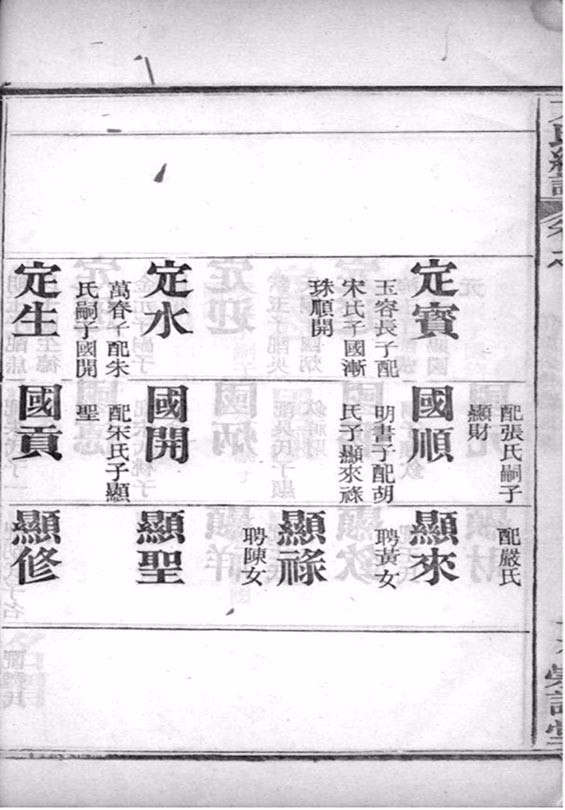 定賓
玉容長子配
宋氏子國漸
珠順開
定水
萬春子配朱
氏嗣子國開
定生
配張氏嗣子
顯財
國順
明書子配胡
氏子顯來祿
國開
配宋氏子顯
聖
國貢
配嚴氏
顯來
聘黃女
顯祿
聘陳女
顯聖
顯修